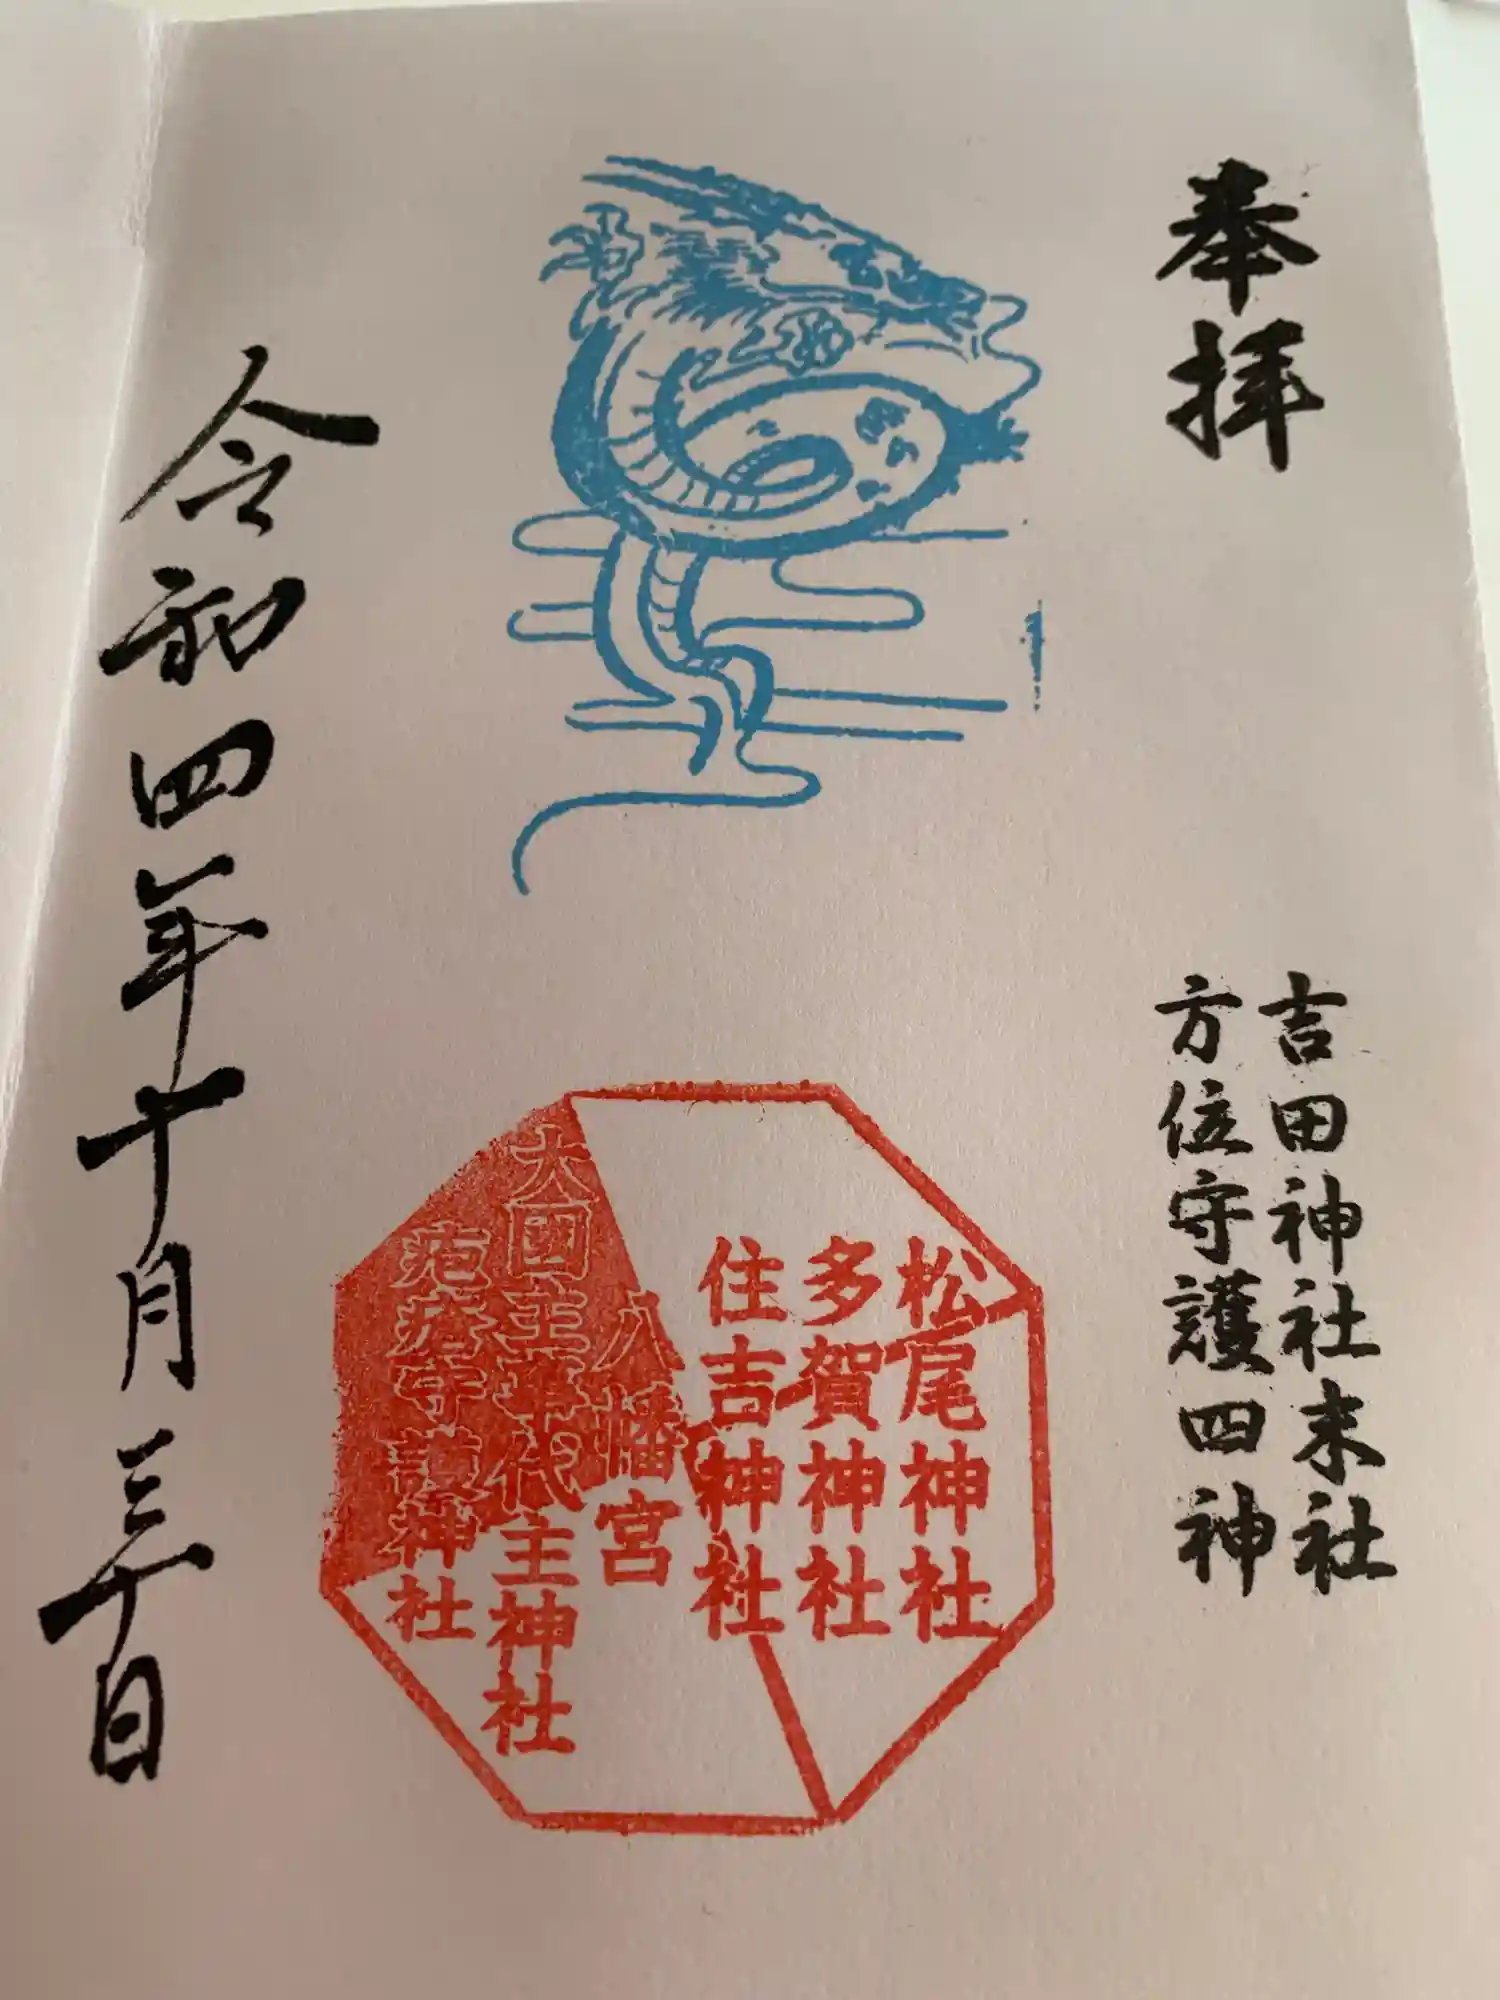 奉拝
吉田神社末社
方位守護四神
松尾神社
多賀神社
住吉神社
八幡宮
大國主事代主神社
疱瘡守護神社
令和四年十月三十日